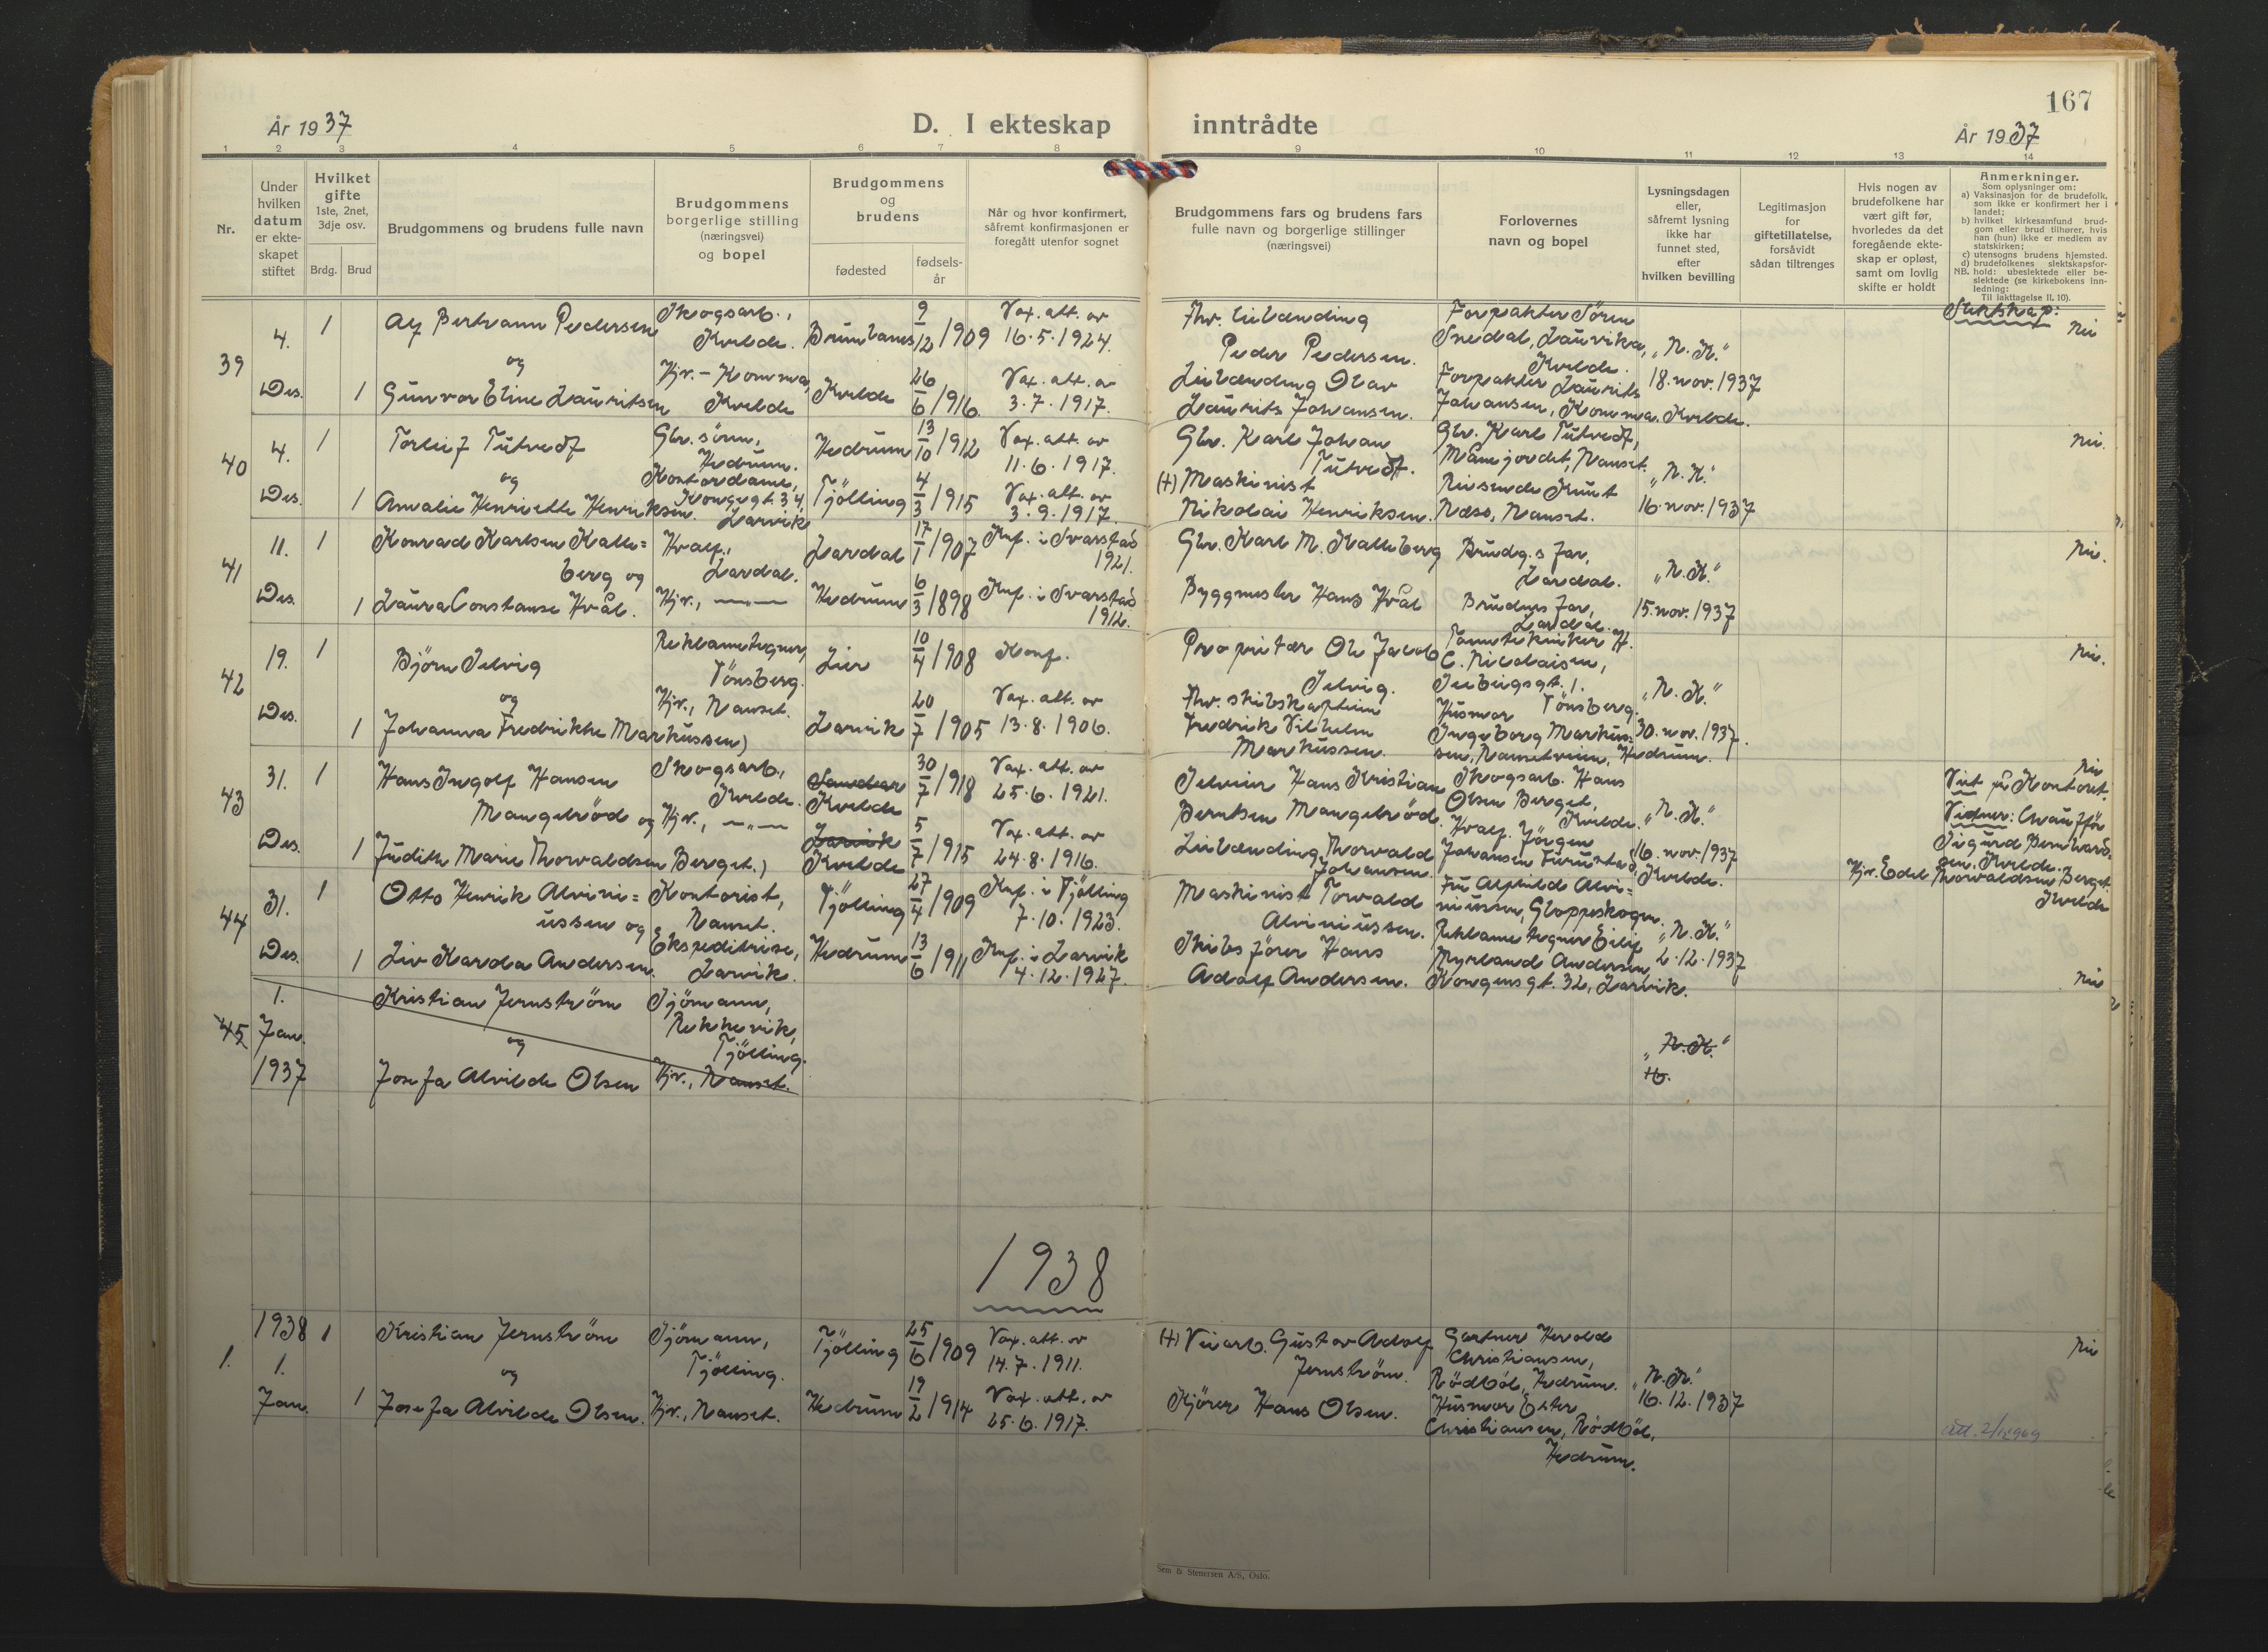 167
År 1937
D. I ekteskap inntrådte
År 1937
1 2 3 4 5 6 7 8 9 10 11 12 13 14
Nr.
Under hvilken datum er ekte-skapet stiftet
Hvilket gifte
1ste, 2net, 3dje osv.
Brdg. Brud
Brudgommens og brudens fulle navn
Brudgommens borgerlige stilling (næringsvei) og bopel
Brudgommens og brudens
fødested
fødsels-år
Når og hvor konfirmert, såfremt konfirmasjonen er foregått utenfor sognet
Brudgommens fars og brudens fars fulle navn og borgerlige stillinger (næringsvei)
Forlovernes navn og bopel
Lysningsdagen eller, såfremt lysning ikke har funnet sted, efter hvilken bevilling
Legitimasjon for giftetillatelse, forsåvidt sådan tiltrenges
Hvis nogen av brudefolkene har vært gift før, hvorledes da det foregående ekte-skap er opløst, samt om lovlig skifte er holdt
Anmerkninger.
Som oplysninger om:
a) Vaksinasjon for de brudefolk, som ikke er konfirmert her i landet;
b) hvilket kirkesamfund brud-gom eller brud tilhører, hvis han (hun) ikke er medlem av statskirken;
c) utensogns brudens hjemsted.
d) brudefolkenes slektskapsfor-hold: ubeslektede eller be-slektede (se kirkebokens inn-ledning:
NB.
Til iakttagelse II, 10).
Slektskap:
39
4. Des.
1
Alf Bertrann Pedersen
og
1
Gunvor Eline Lauritsen
Skogsarb.,
Kvelde.
Hjv. - Komma,
Kvelde
Brunlanes
Kvelde
9/12 1909
26/6 1916
Vax. att. av
16.5.1924.
Vax. att. av
3.7.1917.
Fhv. leilending
Peder Pedersen.
Leilending Olav
Laurits Johansen.
Forpakter Sören
Snedal, Lauvika,
Kvelde.
Forpakter Laurits
Johansen, Komma, Kvelde.
"N. K."
18. nov. 1937
Nei
40
4. Des.
1
Torleif Tutvedt
og
1
Amalie Henriette Henriksen.
Gbr. sönn,
Hedrum.
Kontordame,
Kongegt. 34,
Larvik
Hedrum
Tjölling
13/10 1912
4/3 1915
Vax. att. av
11.6.1917.
Vax. att. av
3.9.1917.
Gbr. Karl Johan
Tutvedt.
(+) Maskinist
Nikolai Henriksen.
Gbr. Karl Tutvedt,
Månejordet, Nanset.
Reisende Knut
Næss, Nanset.
"N. K."
16. nov. 1937
Nei.
41
11. Des.
1
Konrad Karlsen Kalle=
berg og
1
Laura Constanse Hvål.
Hvalf.,
Lardal.
Hjv., —"—
Lardal
Hedrum
17/1 1907
6/3 1898
Knf. i Svarstad
1921.
Knf. i Svarstad
1912.
Gbr. Karl M. Kalleberg
Byggmester Hans Hvål
Brudg.s far,
Lardal.
Brudens far,
Lardal.
"N. K."
15. nov. 1937
Nei.
42
19. Des.
1
Björn Selvig
og
1
Johanna Fredrikke Markussen)
Reklametegner,
Tönsberg.
Hjv., Nanset.
Lier
Larvik
10/4 1908
20/7 1905
Konf.
Vax. att. av
13.8.1906.
Proprietær Ole Jacob
Selvig.
Fhv. skibskaptein
Fredrik Vilhelm
Markussen.
Tannteknikker H.
C. Nicolaisen,
Tönsberg.
Husmor
Ingeborg Markus=
sen, Nansetveien, Hedrum.
"N. K."
30. nov. 1937.
Nei.
43
31. Des.
1
Hans Ingolf Hansen
Mangelröd og
1
Judith Marie Thorvaldsen Berget.)
Skogsarb.,
Kvelde.
Hjv., —"—
Sandar
Kvelde
Larvik
Kvelde
30/7 1918
5/7 1915
Vax. att. av
25.6.1921.
Vax. att. av
24.8.1916.
Selveier Hans Kristian
Berntsen Mangelröd.
Leilending Thorvald
Johansen.
Skogsarb. Hans
Olsen Berget,
Kvelde.
Hvalf. Jörgen
Johansen Furustad,
Kvelde.
"N. K."
16. nov. 1937
Nei
Viet på Kontoret.
Vidner: Chaufför
Sigurd Bernhard=
sen, Kvelde.
Hjv. Edel Thorvaldsen Berget
Kvelde
44
31. Des.
1
Otto Henrik Alvini=
ussen og
1
Liv Karda Andersen.
Kontorist,
Nanset.
Ekspeditrise,
Larvik.
Tjölling
Hedrum
27/4 1909
13/6 1911
Knf. i Tjölling
7.10.1923.
Knf. i Larvik
4.12.1927.
Maskinist Torvald
Alviniussen.
Skibsförer Hans
Adolf Andersen.
Fru Alfhilde Alvi=
niussen, Gloppeskogen.
Reklametegner Eilif
Myrland Andersen,
Kongensgt. 32, Larvik.
"N. K."
2.12.1937
Nei
45
1. Jan. 1937
Kristian Jernström
og
Josefa Alvilde Olsen
Sjömann,
Rekkevik,
Tjölling.
Hjv., Nanset.
"N. K."
16.
1938
1.
1938
1. Jan.
1
Kristian Jernström
og
1
Josefa Alvilde Olsen.
Sjömann,
Tjölling.
Hjv., Nanset.
Tjölling
Hedrum
25/6 1909
19/2 1914
Vax. att. av
14.7.1911.
Vax. att. av
25.6.1917.
(+) Veiarb. Gustav Adolf
Jernström.
Kjörer Hans Olsen.
Gartner Herold
Christiansen,
Rödböl, Hedrum.
Husmor Ester
Christiansen, Rödböl,
Hedrum.
"N. K."
16.12.1937
Nei
Sem & Stenersen A/S, Oslo.